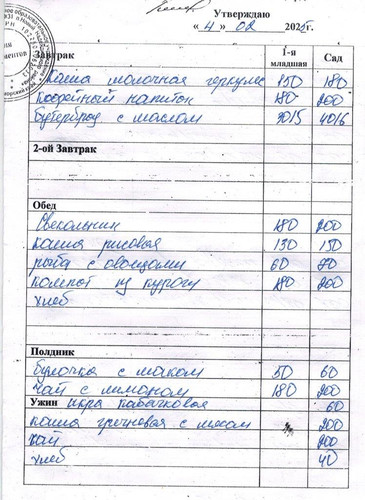 Утверждаю
« 4 » 02 2025г.
Завтрак 1-я младшая Сад
Каша молочная геркулес 150 180
кофейный напиток 180 200
бутерброд с маслом 3015 4016
2-ой Завтрак
Обед
Свекольник 180 200
каша рисовая 130 150
рыба с овощами 60 80
компот из кураги 180 200
хлеб
Полдник
булочка с маком 50 60
чай с лимоном 180 200
Ужин икра кабачковая 60
каша гречневая с мясом 200
чай 200
хлеб 40